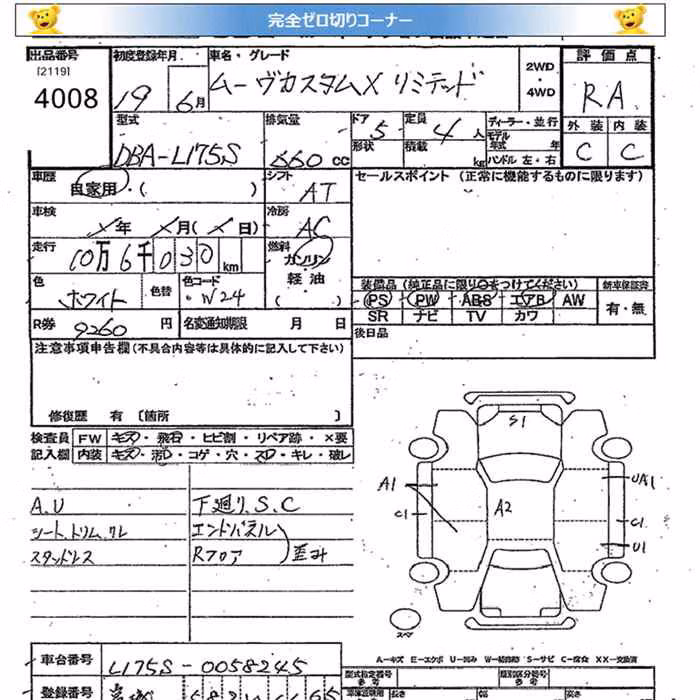 完全ゼロ切りコーナー
出品番号 初度登録年月 車名・グレード 2WD・4WD 評価点
[2119]
4008 19 6月 ムーヴカスタムX リミテッド RA
型式 排気量 ドア 5 定員 4人 ディーラー・並行 外装 内装
DBA-L175S 660cc 形状 積載 kg モデル年式 年 ハンドル 左・右 C C
車歴 自家用・( ) シフト AT セールスポイント (正常に機能するものに限ります)
車検 ×年 ×月(×日) 冷房 AC
走行 10万6千030km 燃料 ガソリン 軽・油 ( )
色 ホワイト 色替 色コード W24
装備品 (純正品に限り○をつけてください) 新車保証書
PS PW ABS エアB AW 有・無
SR ナビ TV カワ
R券 9260円 名変通知期限 月 日 後日品
注意事項申告欄(不具合内容等は具体的に記入して下さい)
修復歴 有 [箇所 ]
検査員 FW キズ・飛石・ヒビ割・リペア跡・×要
記入欄 内装 キズ・汚レ・コゲ・穴・スレ・キレ・破レ
A.U 下廻り.S.C
シート.トリム.ワレ エンドパネル
スタッドレス Rフロア 歪み
S1
A1 A2 UA1
C1 C1
U1
スペア
A-キズ E-エクボ U-凹み W-補修跡 S-サビ C-腐食 XX-交換済
車台番号 L175S-0058245 型式指定番号 参考 類別区分番号 参考
登録番号 長さ 幅 高さ